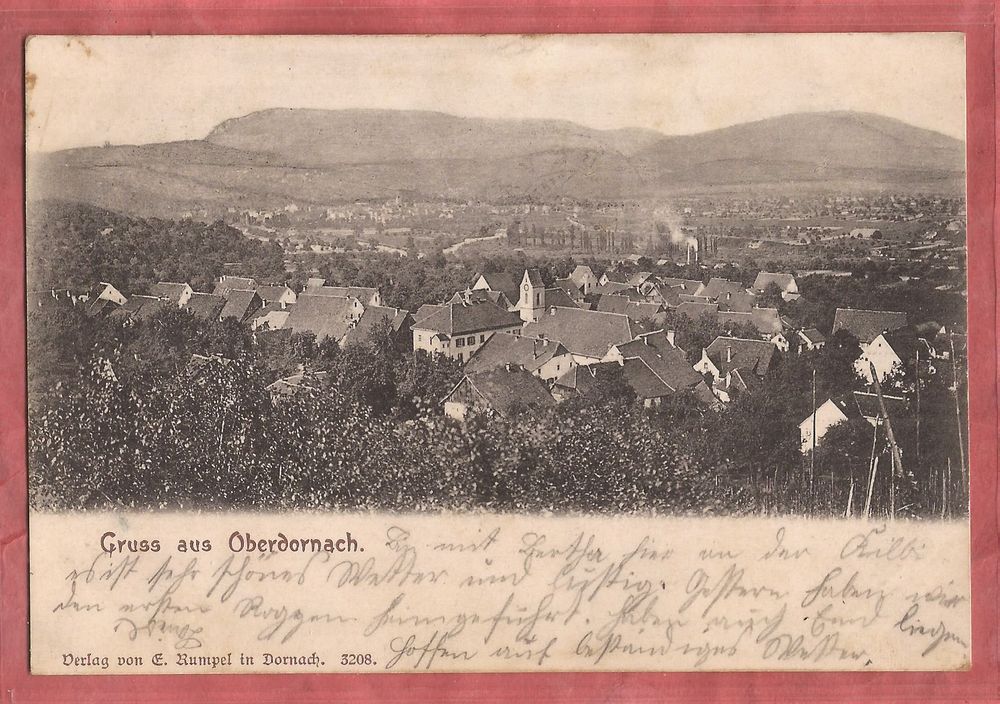 Gruss aus Oberdornach. Bin mit Bertha hier an der Kilbi
es ist sehr schönes Wetter und lustig. Gestern haben wir
den ersten Roggen heimgeführt. haben auch Emd liegen
hoffen auf beständiges Wetter.
Verlag von E. Rumpel in Dornach. 3208.